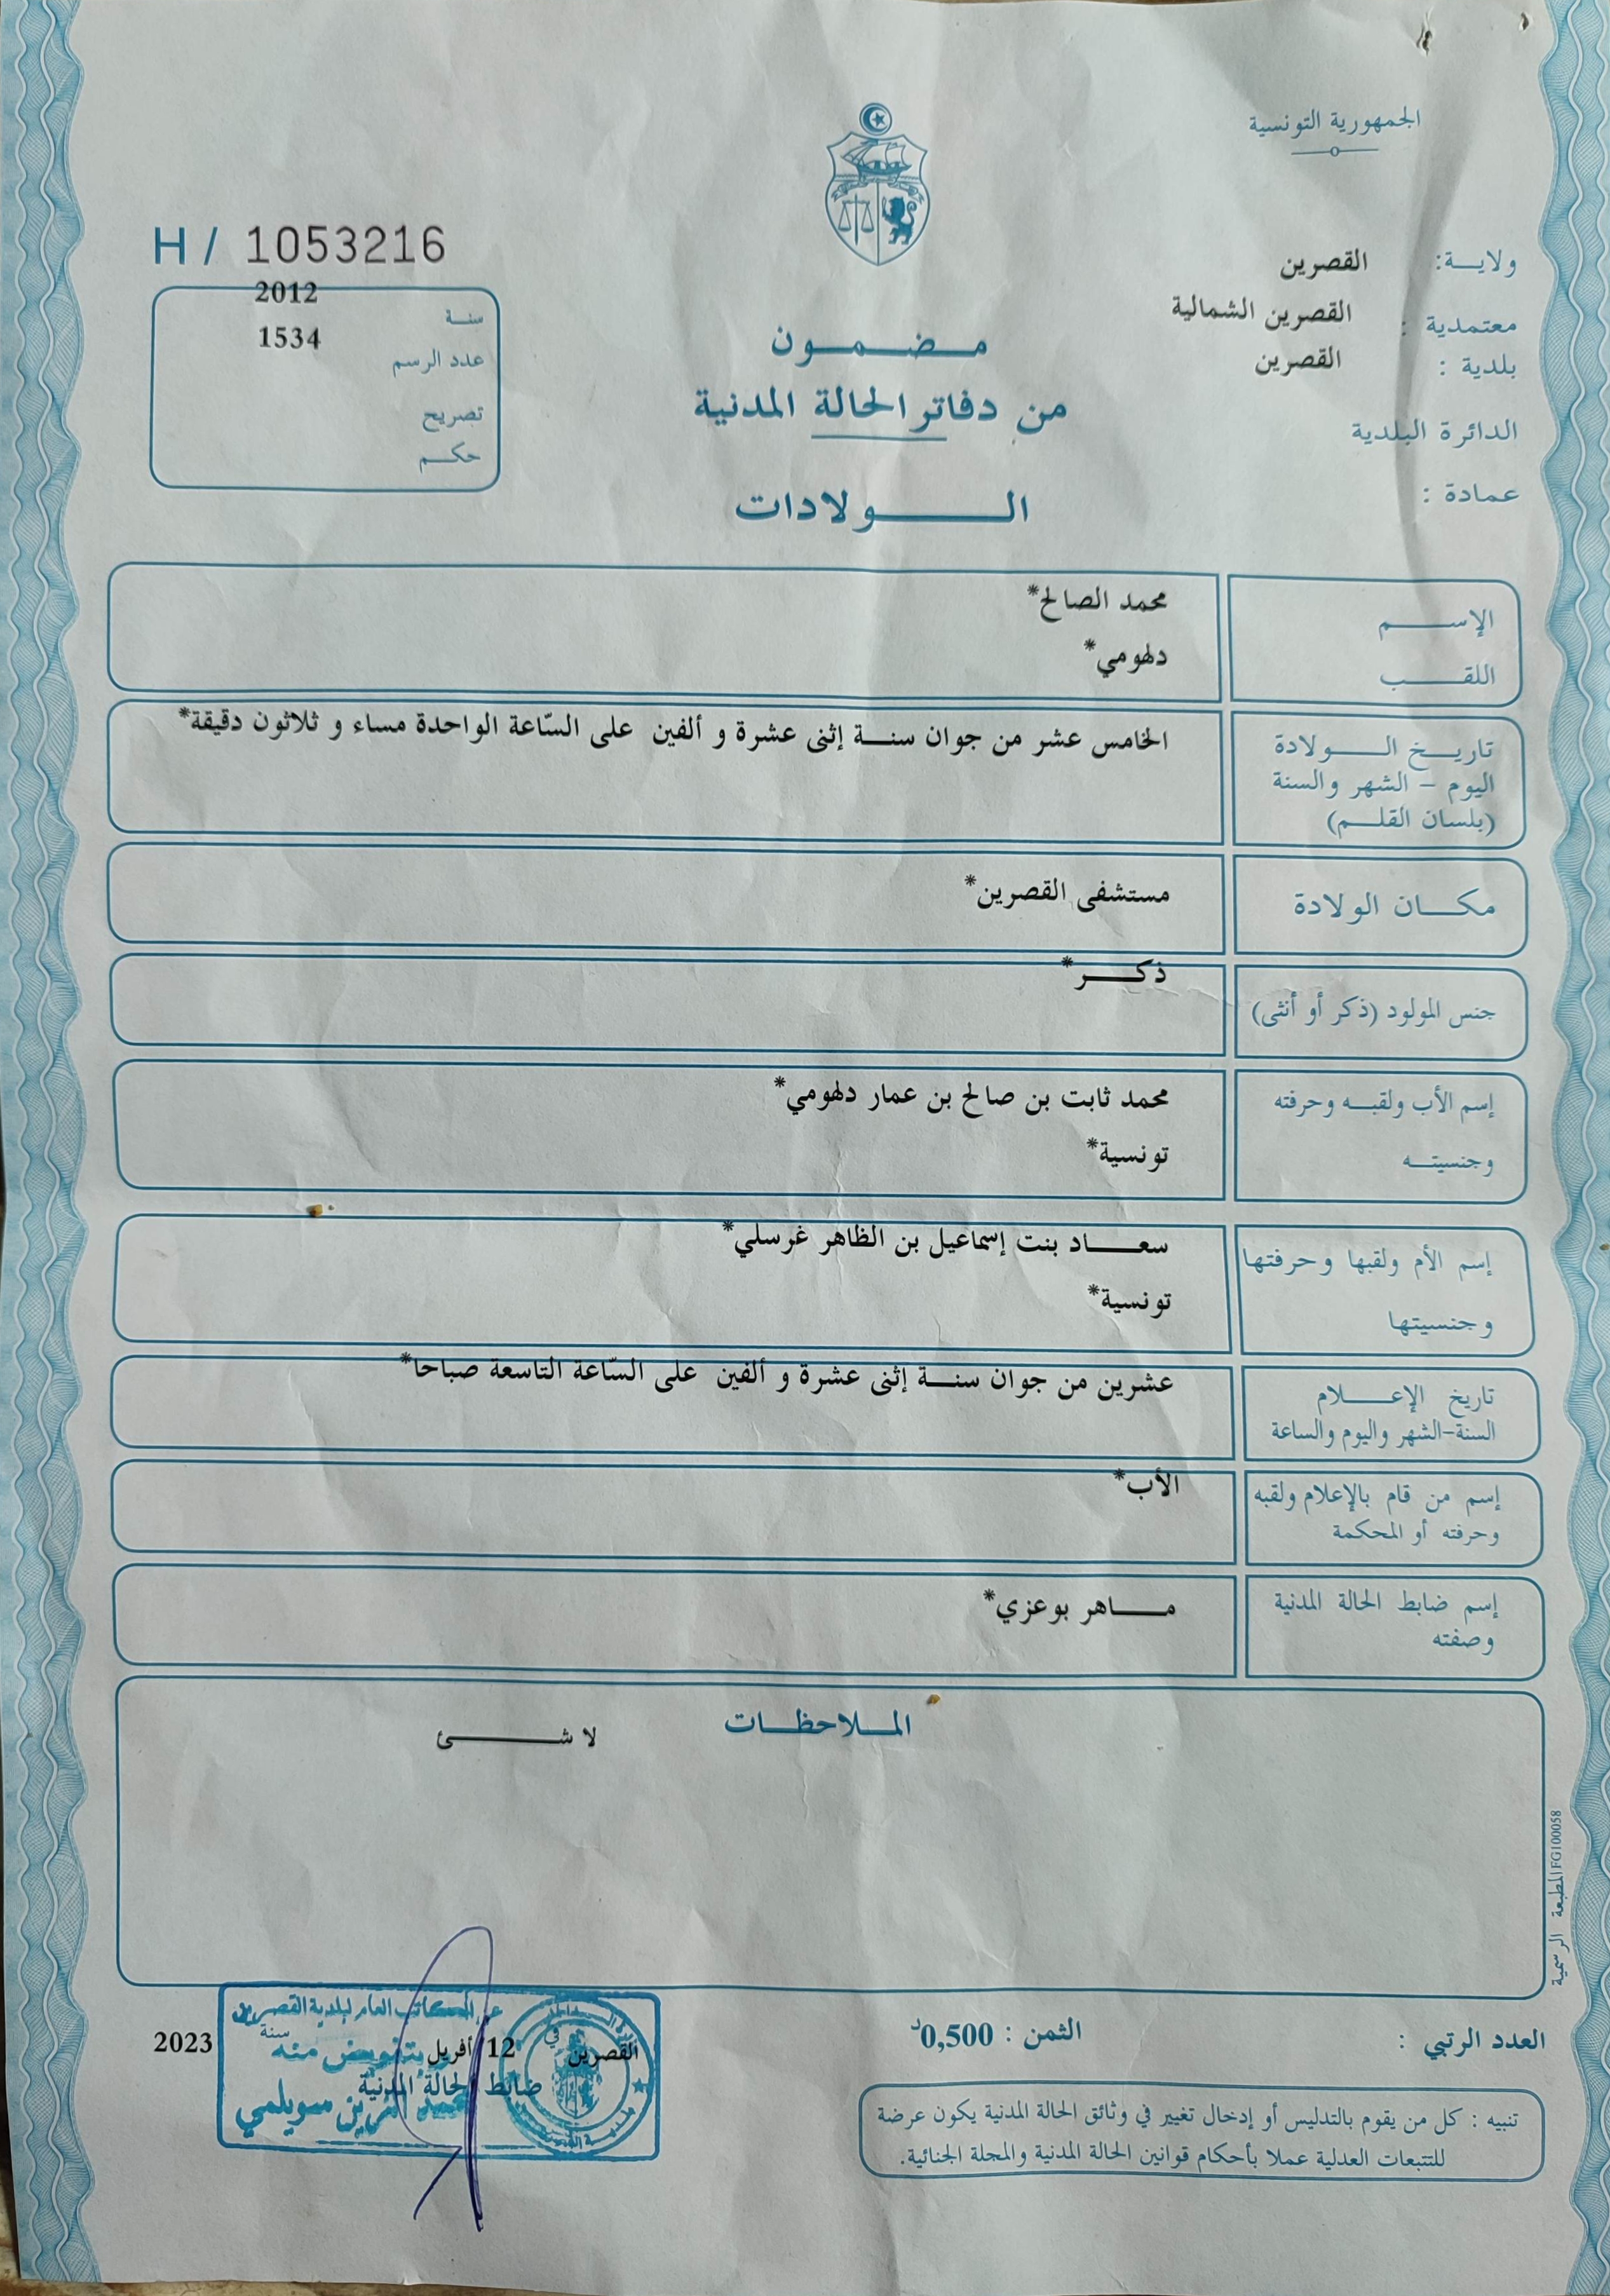 الجمهورية التونسية
ولايـــة: القصرين
معتمدية : القصرين الشمالية
بلدية : القصرين
الدائرة البلدية
عمادة :
H / 1053216
سنــة 2012
عدد الرسم 1534
تصريح
حكــم
مــضــمــون
من دفاتر الحالة المدنية
الــــولادات
الإســـــم محمد الصالح*
اللقـــــب دلهومي*
تاريــخ الـــــولادة
اليوم – الشهر والسنة
(بلسان القلـــم)
الخامس عشر من جوان سنــة إثنى عشرة و ألفين على السّاعة الواحدة مساء و ثلاثون دقيقة*
مكـــان الولادة مستشفى القصرين*
جنس المولود (ذكر أو أنثى) ذكــــر*
إسم الأب ولقبــه وحرفته محمد ثابت بن صالح بن عمار دلهومي*
وجنسيتــه تونسية*
إسم الأم ولقبها وحرفتها سعــــاد بنت إسماعيل بن الظاهر غرسلي*
وجنسيتها تونسية*
تاريخ الإعــــلام
السنة-الشهر واليوم والساعة
عشرين من جوان سنــة إثنى عشرة و ألفين على السّاعة التاسعة صباحا*
إسم من قام بالإعلام ولقبه
وحرفته أو المحكمة
الأب*
إسم ضابط الحالة المدنية
وصفته
مــــاهر بوعزي*
المــلاحظــات
لا شـــــئ
المطبعة الرسمية FG100058
العدد الرتبي :
الثمن : 0,500د
عن الكاتب العام لبلدية القصرين
القصرين في 12 أفريل سنة 2023
بتفويض منه
ضابط الحالة المدنية
سويلمي
تنبيه : كل من يقوم بالتدليس أو إدخال تغيير في وثائق الحالة المدنية يكون عرضة
للتتبعات العدلية عملا بأحكام قوانين الحالة المدنية والمجلة الجنائية.